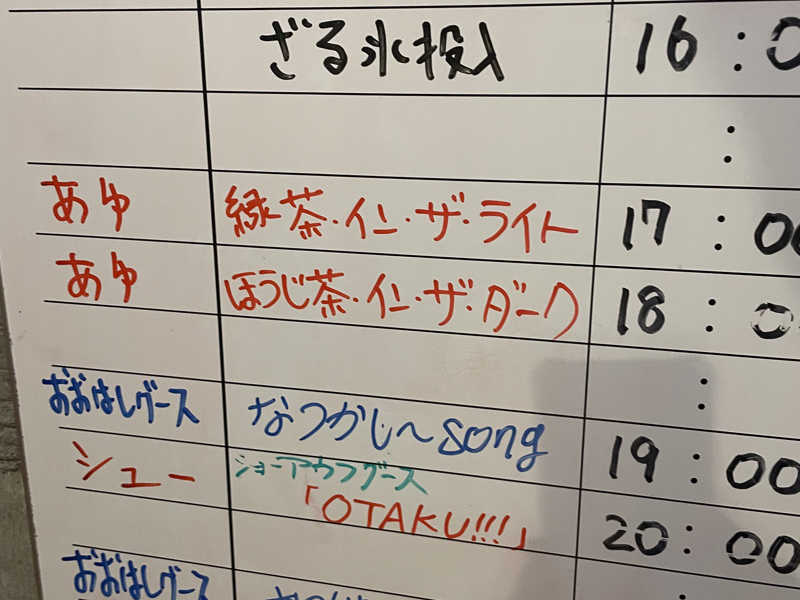 ざる氷投入 16:0
:
あゆ 緑茶・イン・ザ・ライト 17:00
あゆ ほうじ茶・イン・ザ・ダーク 18:0
:
おおはしグース なつかし〜song 19:00
シュー ショーアウフグース
「OTAKU!!!」 20:00
おおはしグース